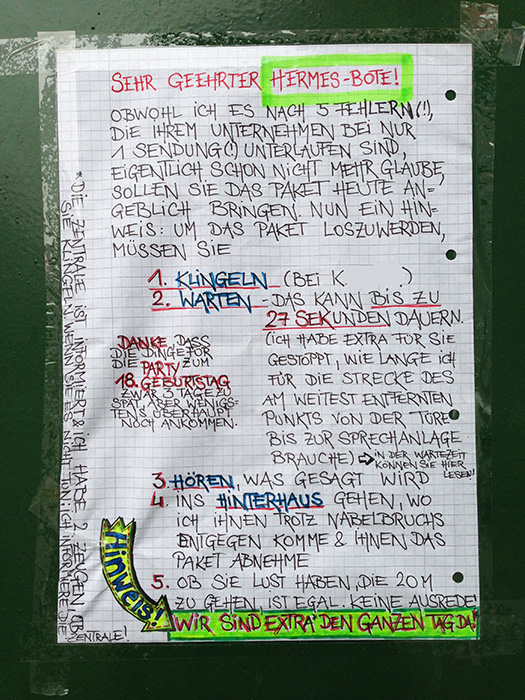 SEHR GEEHRTER HERMES-BOTE!
OBWOHL ICH ES NACH 5 FEHLERN(!),
DIE IHREM UNTERNEHMEN BEI NUR
1 SENDUNG(!) UNTERLAUFEN SIND,
EIGENTLICH SCHON NICHT MEHR GLAUBE,
SOLLEN SIE DAS PAKET HEUTE AN-
GEBLICH BRINGEN. NUN EIN HIN-
WEIS: UM DAS PAKET LOSZUWERDEN,
MÜSSEN SIE
1. KLINGELN (BEI K )
2. WARTEN - DAS KANN BIS ZU
27 SEKUNDEN DAUERN.
(ICH HABE EXTRA FÜR SIE
GESTOPPT, WIE LANGE ICH
FÜR DIE STRECKE DES
AM WEITEST ENTFERNTEN
PUNKTS VON DER TÜRE
BIS ZUR SPRECHANLAGE
BRAUCHE) ⇨ IN DER WARTEZEIT
KÖNNEN SIE HIER
LESEN!
DANKE, DASS
DIE DINGE FÜR
DIE PARTY ZUM
18. GEBURTSTAG
ZWAR 3 TAGE ZU
SPÄT, ABER WENIGS-
TENS ÜBERHAUPT
NOCH ANKOMMEN.
3. HÖREN, WAS GESAGT WIRD
4. INS HINTERHAUS GEHEN, WO
ICH IHNEN TROTZ NABELBRUCHS
ENTGEGEN KOMME & IHNEN DAS
PAKET ABNEHME
5. OB SIE LUST HABEN, DIE 20 M
ZU GEHEN, IST EGAL. KEINE AUSREDE!
Hinweis!
WIR SIND EXTRA DEN GANZEN TAG DA!
*DIE ZENTRALE IST INFORMIERT & ICH HABE 2 ZEUGEN, OB
SIE KLINGELN. WENN SIE ES NICHT TUN: ICH INFORMIERE DIE
ZENTRALE!